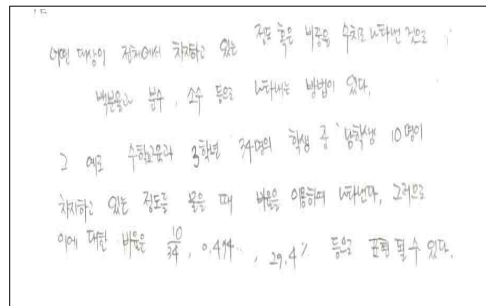 어떤 대상의 전체에서 차지하고 있는 정도 혹은 비중을 수치로 나타낸 것으로
백분율과 분수, 소수 등으로 나타내는 방법이 있다.
그 예로 수학교육과 3학년 34명의 학생 중 남학생 10명이
차지하고 있는 정도를 물을 때 비율을 이용하여 나타낸다. 그러므로
이에 대한 비율은 10/34, 0.494…, 29.4% 등으로 표현 될 수 있다.